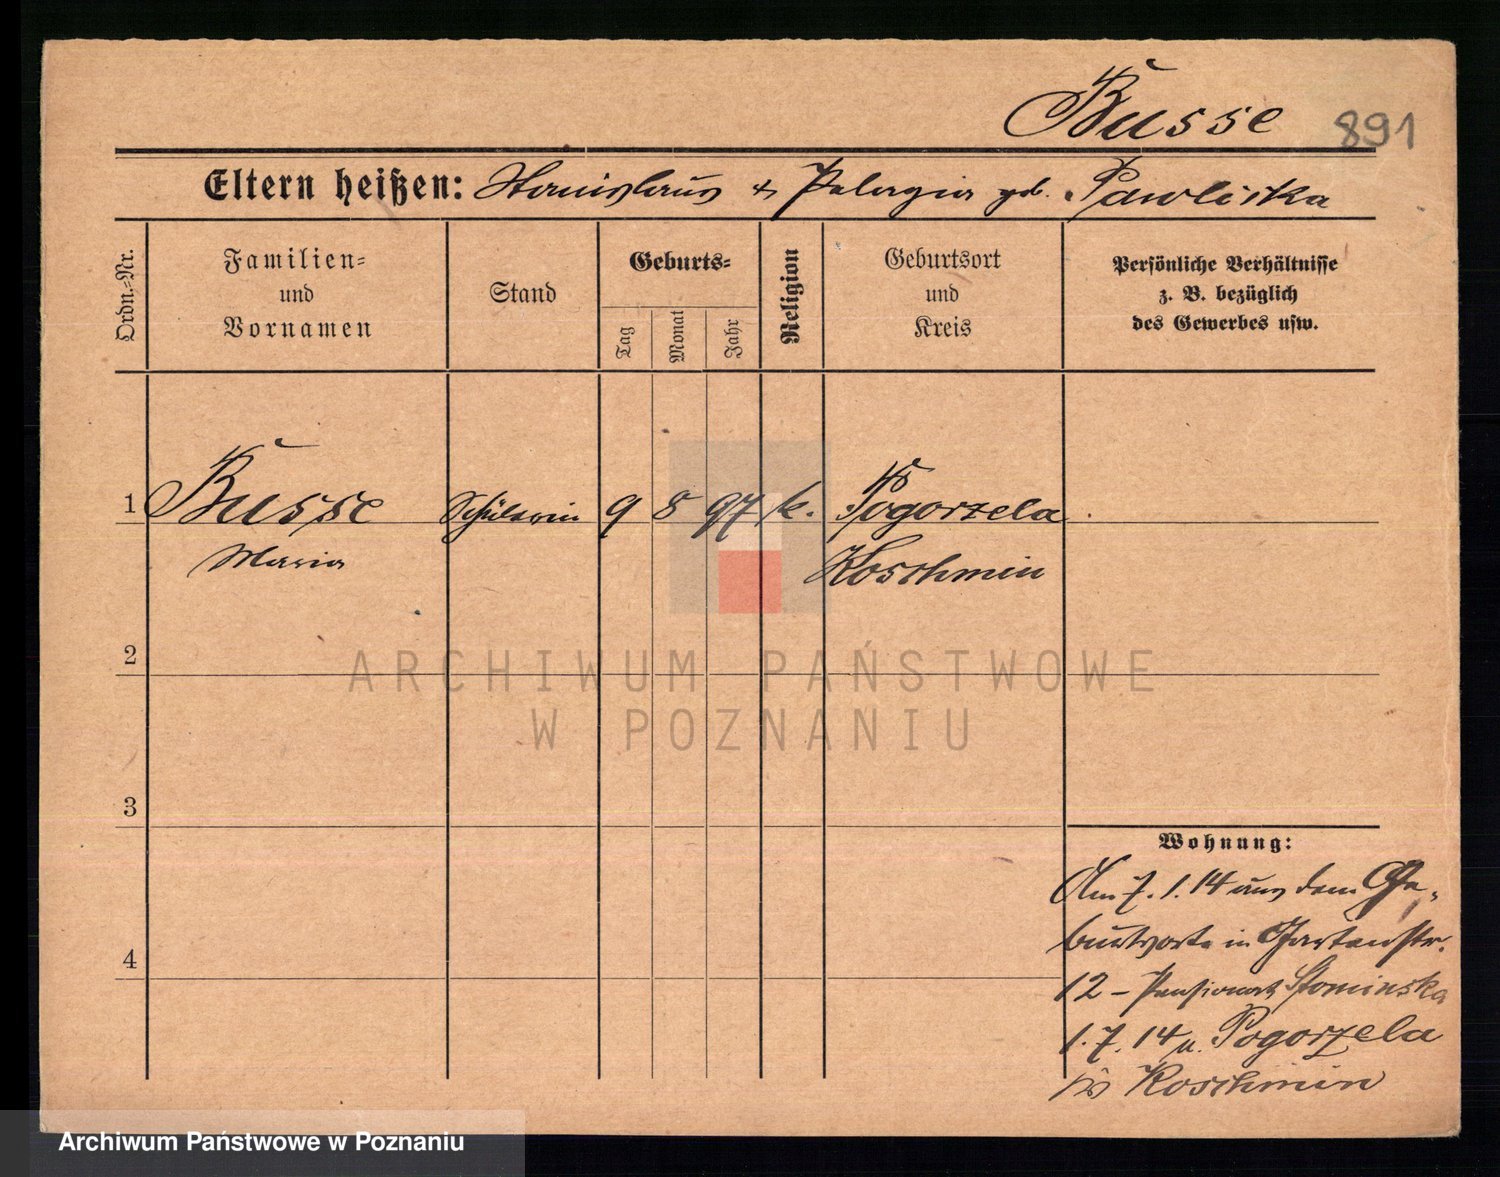 Busse 891
Eltern heißen: Stanislaus & Pelagia geb. Pawlicka
Ordn.=Nr.
Familien=
und
Vornamen
Stand
Geburts=
Tag
Monat
Jahr
Religion
Geburtsort
und
Kreis
Persönliche Verhältnisse
z. B. bezüglich
des Gewerbes usw.
1 Busse Schülerin 9 8 97 k. Pogorzela
Maria Koschmin
2
ARCHIWUM PAŃSTWOWE
W POZNANIU
3
Wohnung:
Am 7. 1. 14 aus dem Ge-
burtsorte in Gartenstr.
4
12 – Pensionat Slominska
1. 7. 14 n. Pogorzela
Koschmin
Archiwum Państwowe w Poznaniu